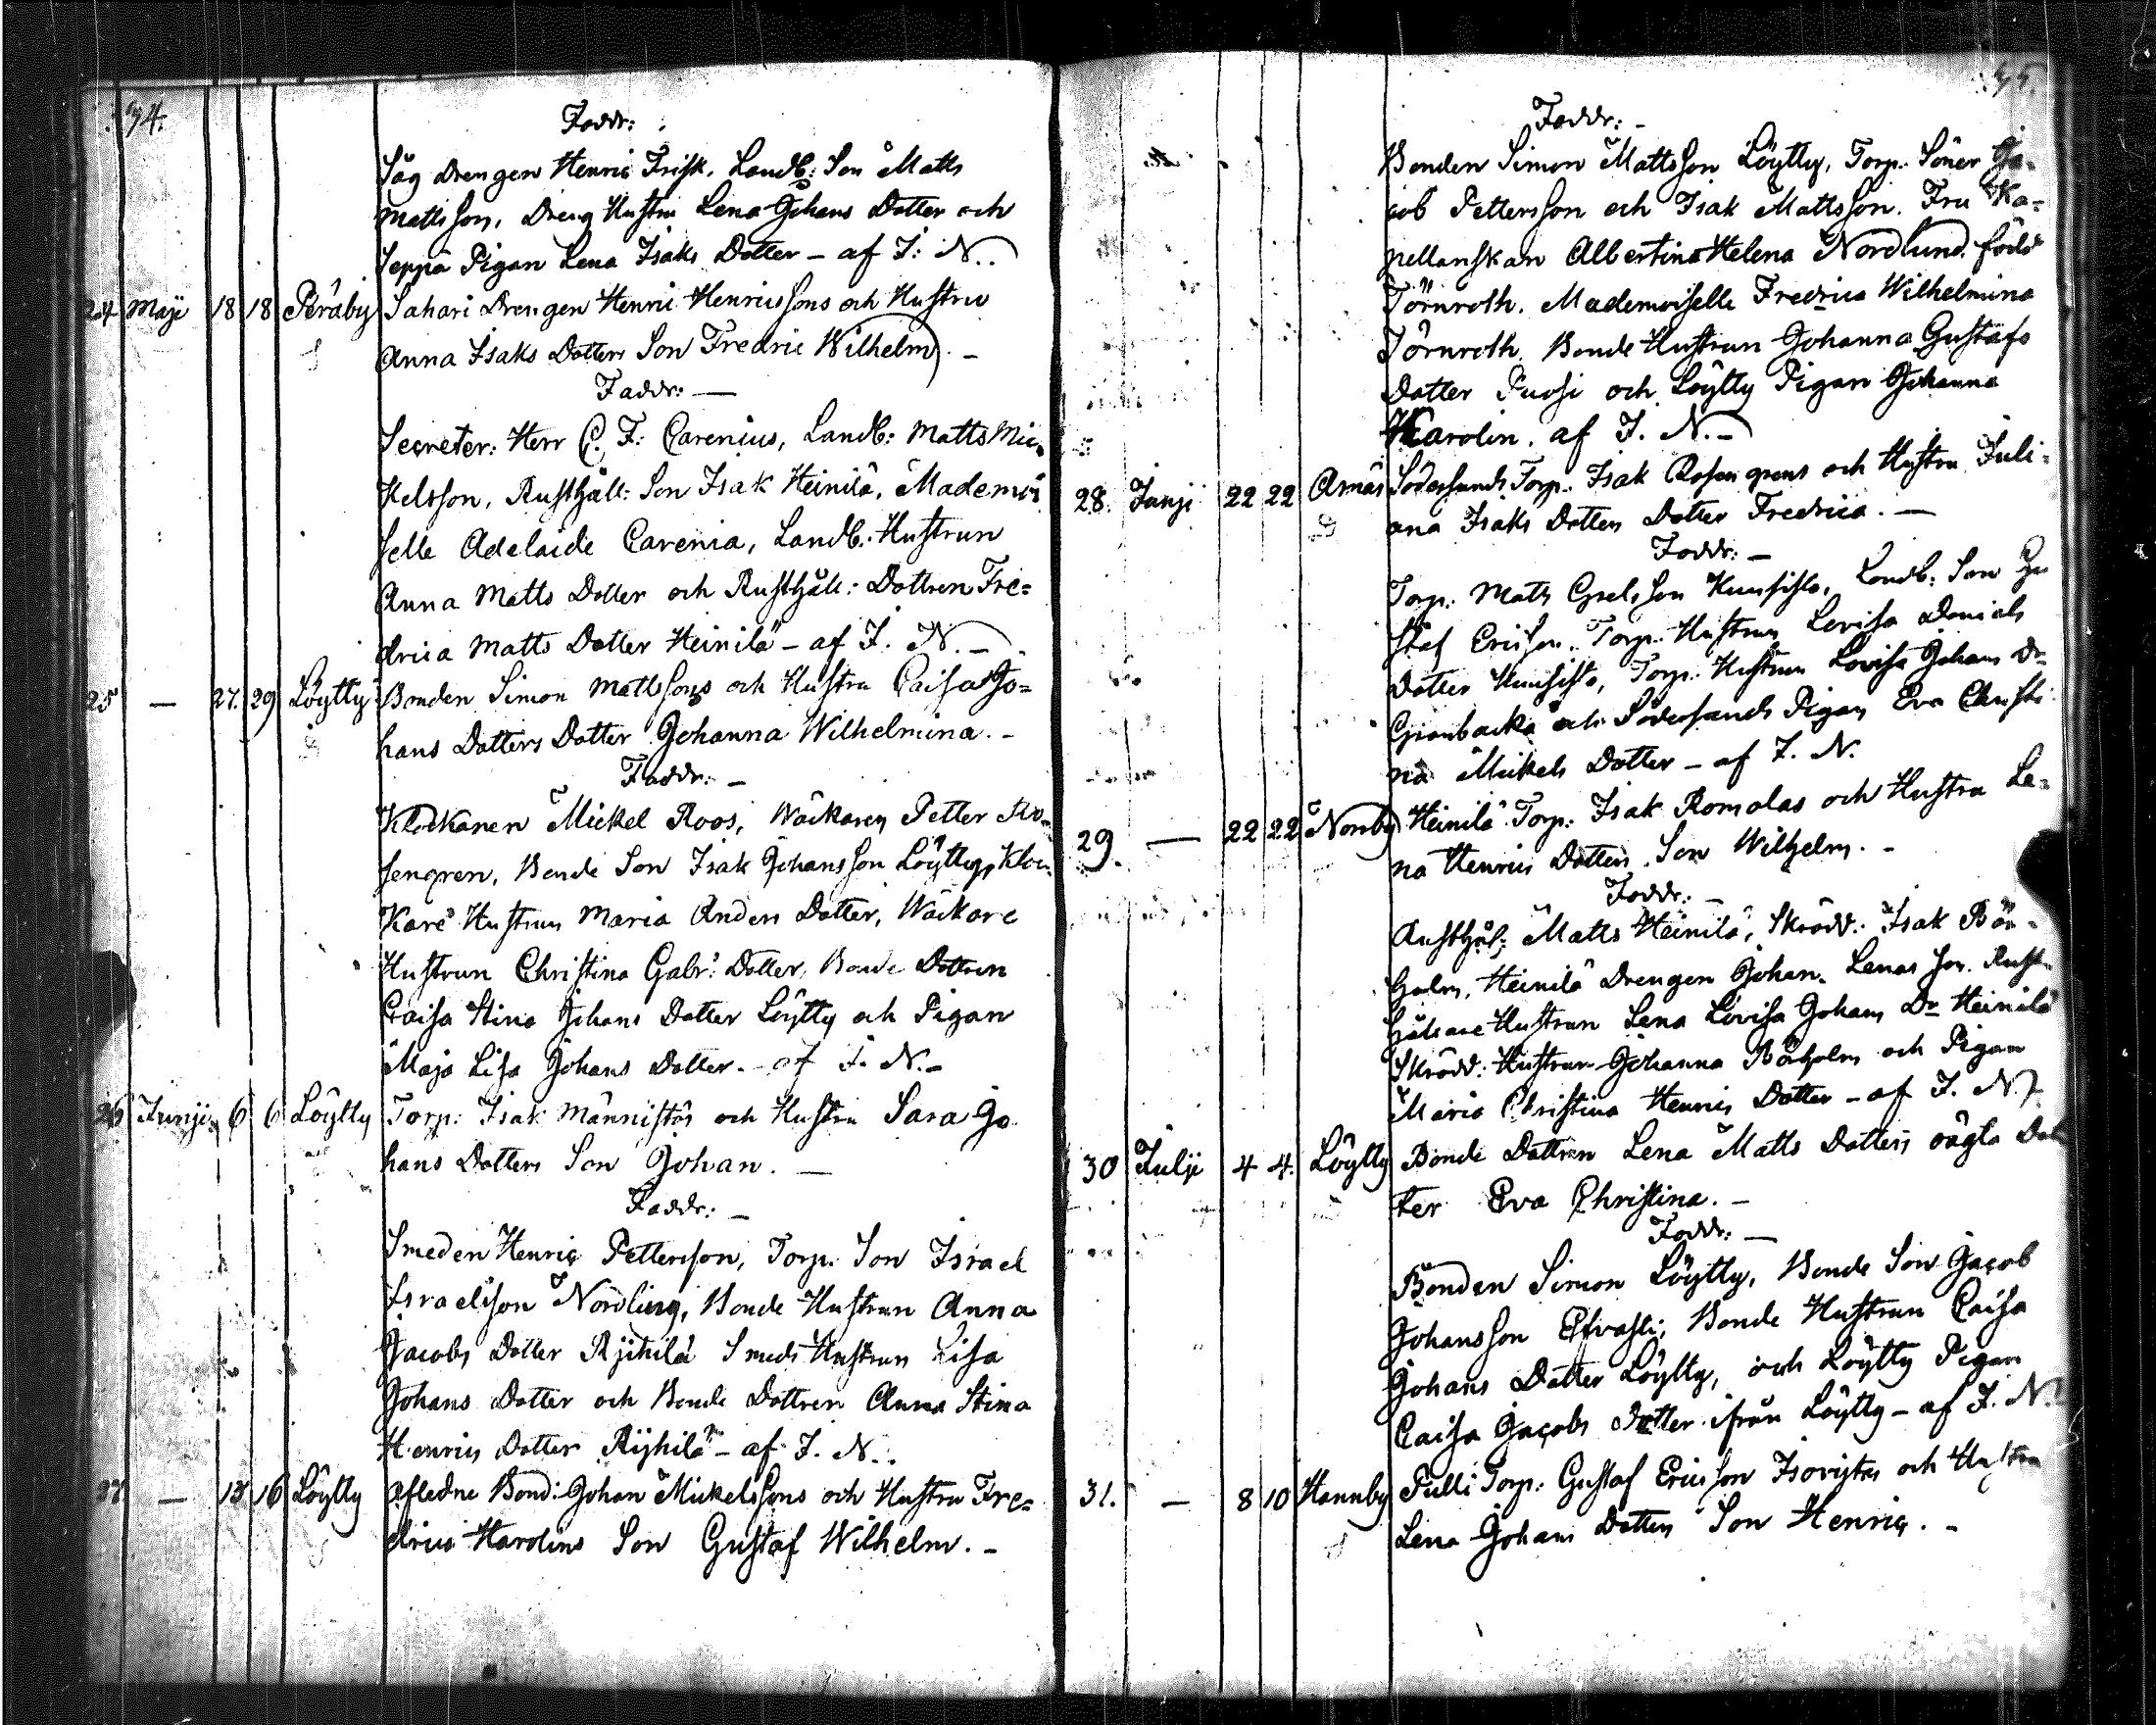 74.
Faddr:
Såg Drengen Henric Frisk, Landb: Son Matts
Mattsson, Dreng Hustru Lena Johans Dotter och
Seppä Pigan Lena Isaks Dotter – af J: N..
24 Maji 18 18 Peräby Sahari Drengen Henric Henricssons och Hustru
Anna Isaks Dotters Son Fredric Wilhelm. –
Faddr: –
Secreter: Herr C. F: Carenius, Landb: Matts Mic-
kelsson, Rusthåll: Son Isak Heinilä, Mademoi
selle Adelaide Carenia, Landb: Hustrun
Anna Matts Dotter och Rusthåll: Dottren Fre=
drica Matts Dotter Heinilä – af J. N. –
25 – 27. 29 Löytty Bonden Simon Mattssons och Hustru Caisa Jo=
hans Dotters Dotter Johanna Wilhelmina. –
Faddr: –
Klockaren Mickel Roos, Wäckaren Petter Ro-
sengren, Bonde Son Isak Johansson Löytty, Kloc-
kare Hustrun Maria Anders Dotter, Wäckare
Hustrun Christina Gabr: Dotter, Bonde Dottren
Caisa Stina Johans Dotter Löytty och Pigan
Maja Lisa Johans Dotter. – af J. N. –
26 Junji 6 6 Löytty Torp: Isak Männistös och Hustru Sara Jo
hans Dotters Son Johan. –
Faddr: –
Smeden Henric Pettersson, Torp. Son Israel
Israelsson Nordling, Bonde Hustrun Anna
Jacobs Dotter Rijhilä Smeds Hustrun Lisa
Johans Dotter och Bonde Dottren Anna Stina
Henrics Dotter Rijhilä – af J. N..
27. – 15 16 Löytty Afledne Bond: Johan Mickelssons och Hustru Fre=
drica Karolins Son Gustaf Wilhelm. –
75.
Faddr: –
Bonden Simon Mattsson Löytty, Torp: Söner Ja-
cob Pettersson och Isak Mattsson. Fru Ka=
pellanskan Albertina Helena Nordlund född
Törnroth. Mademoiselle Fredrica Wilhelmina
Törnroth. Bonde Hustrun Johanna Gustafs
Dotter Puosi och Löytty Pigan Johanna
Karolin. af J. N. –
28. Junji 22 22 Arnäs Södersunds Torp: Isak Rosengrens och Hustru Juli=
ana Isaks Dotters Dotter Fredrica. –
Faddr: –
Torp: Matts Grelsson Kuusisto, Landb: Son Gu
staf Ericsson. Torp: Hustrun Lovisa Daniels
Dotter Kuusisto, Torp: Hustrun Lovisa Johans Dr
Grönbacka och Södersunds Pigan Eva Christi
na Mickels Dotter – af J. N.
29. – 22 22 Norrby Heinilä Torp: Isak Romolas och Hustru Le=
na Henrics Dotters Son Wilhelm. –
Faddr: –
Rusthål: Matts Heinilä, Skrädd: Isak Bör-
holm, Heinilä Drengen Johan Lenas son. Rust-
hållare Hustrun Lena Lovisa Johans Dr Heinilä
Skrädd: Hustrun Johanna Börholm och Pigan
Maria Christina Henrics Dotter – af J. N.
30 Julji 4 4. Löytty Bonde Dottren Lena Matts Dotters oägta Dot
ter Eva Christina. –
Faddr: –
Bonden Simon Löytty, Bonde Son Jacob
Johansson Bonde Hustrun Caisa
Johans Dotter Löytty, och Löytty Pigan
Caisa Jacobs Dotter ifrån Löytty – af J. N.
31. – 8 10 Hannby Pulli Torp: Gustaf Ericsson och Hustru
Lena Johans Dotters Son Henric. –